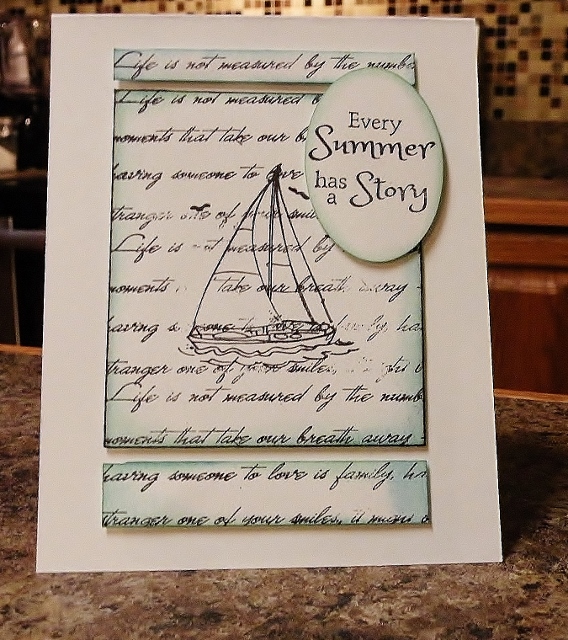 Life is not measured by the numbe
Every
Summer
has
a Story
Life is not measured b
moments that take our b
having someone to love
tranger one of your s
Life is not measured by
moments take our breath away
having s family, ha
tranger one of your smiles,
Life is not measured by the numb
moments that take our breath away
having someone to love is family, ha
tranger one of your smiles, it